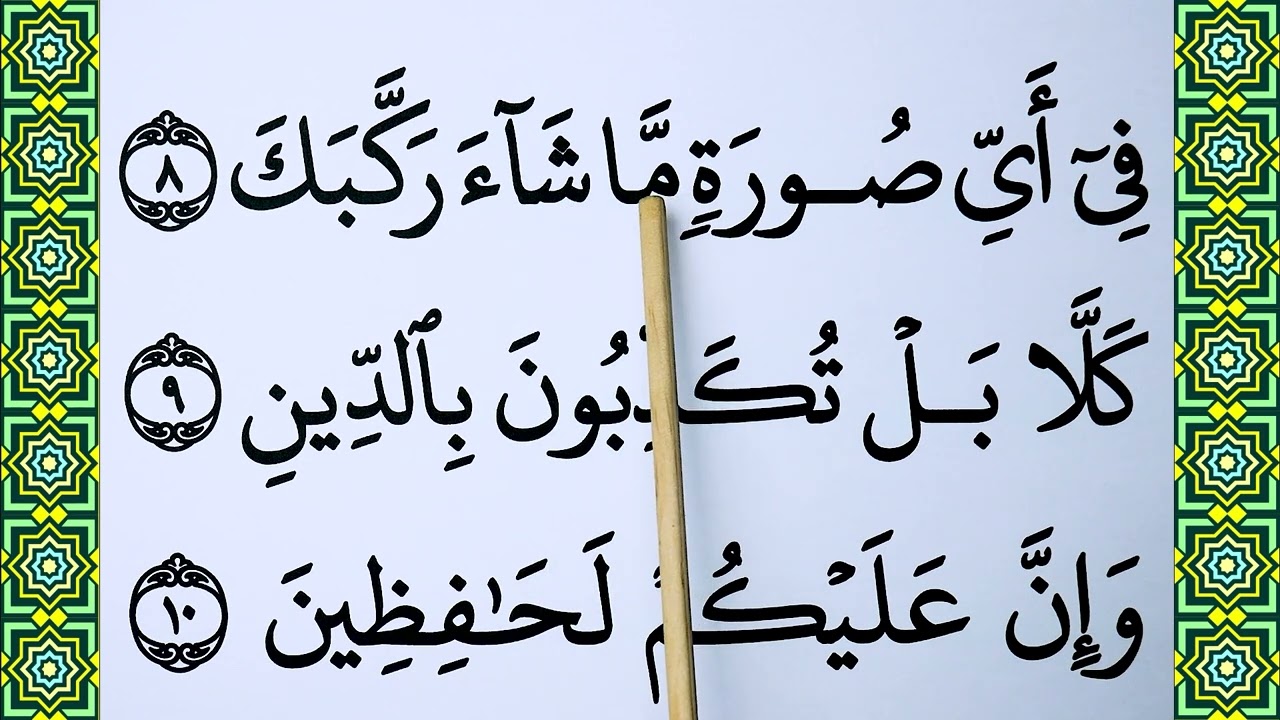 فِىٓ أَىِّ صُورَةٍ مَّا شَآءَ رَكَّبَكَ ٨
كَلَّا بَلْ تُكَذِّبُونَ بِٱلدِّينِ ٩
وَإِنَّ عَلَيْكُمْ لَحَـٰفِظِينَ ١٠